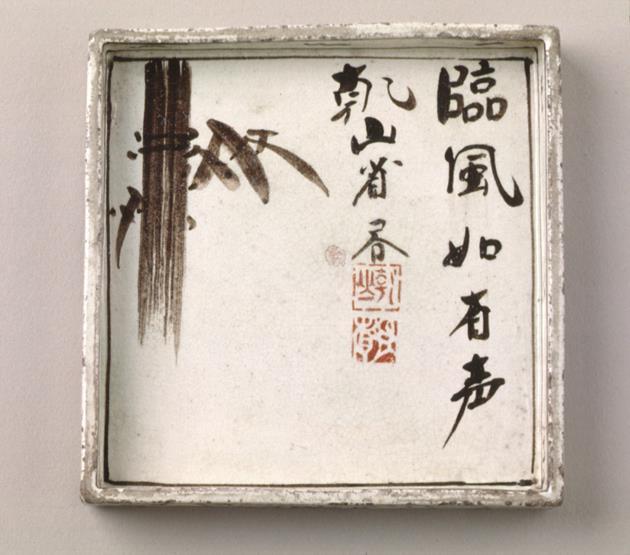 臨風如有声
乾山省
乾山